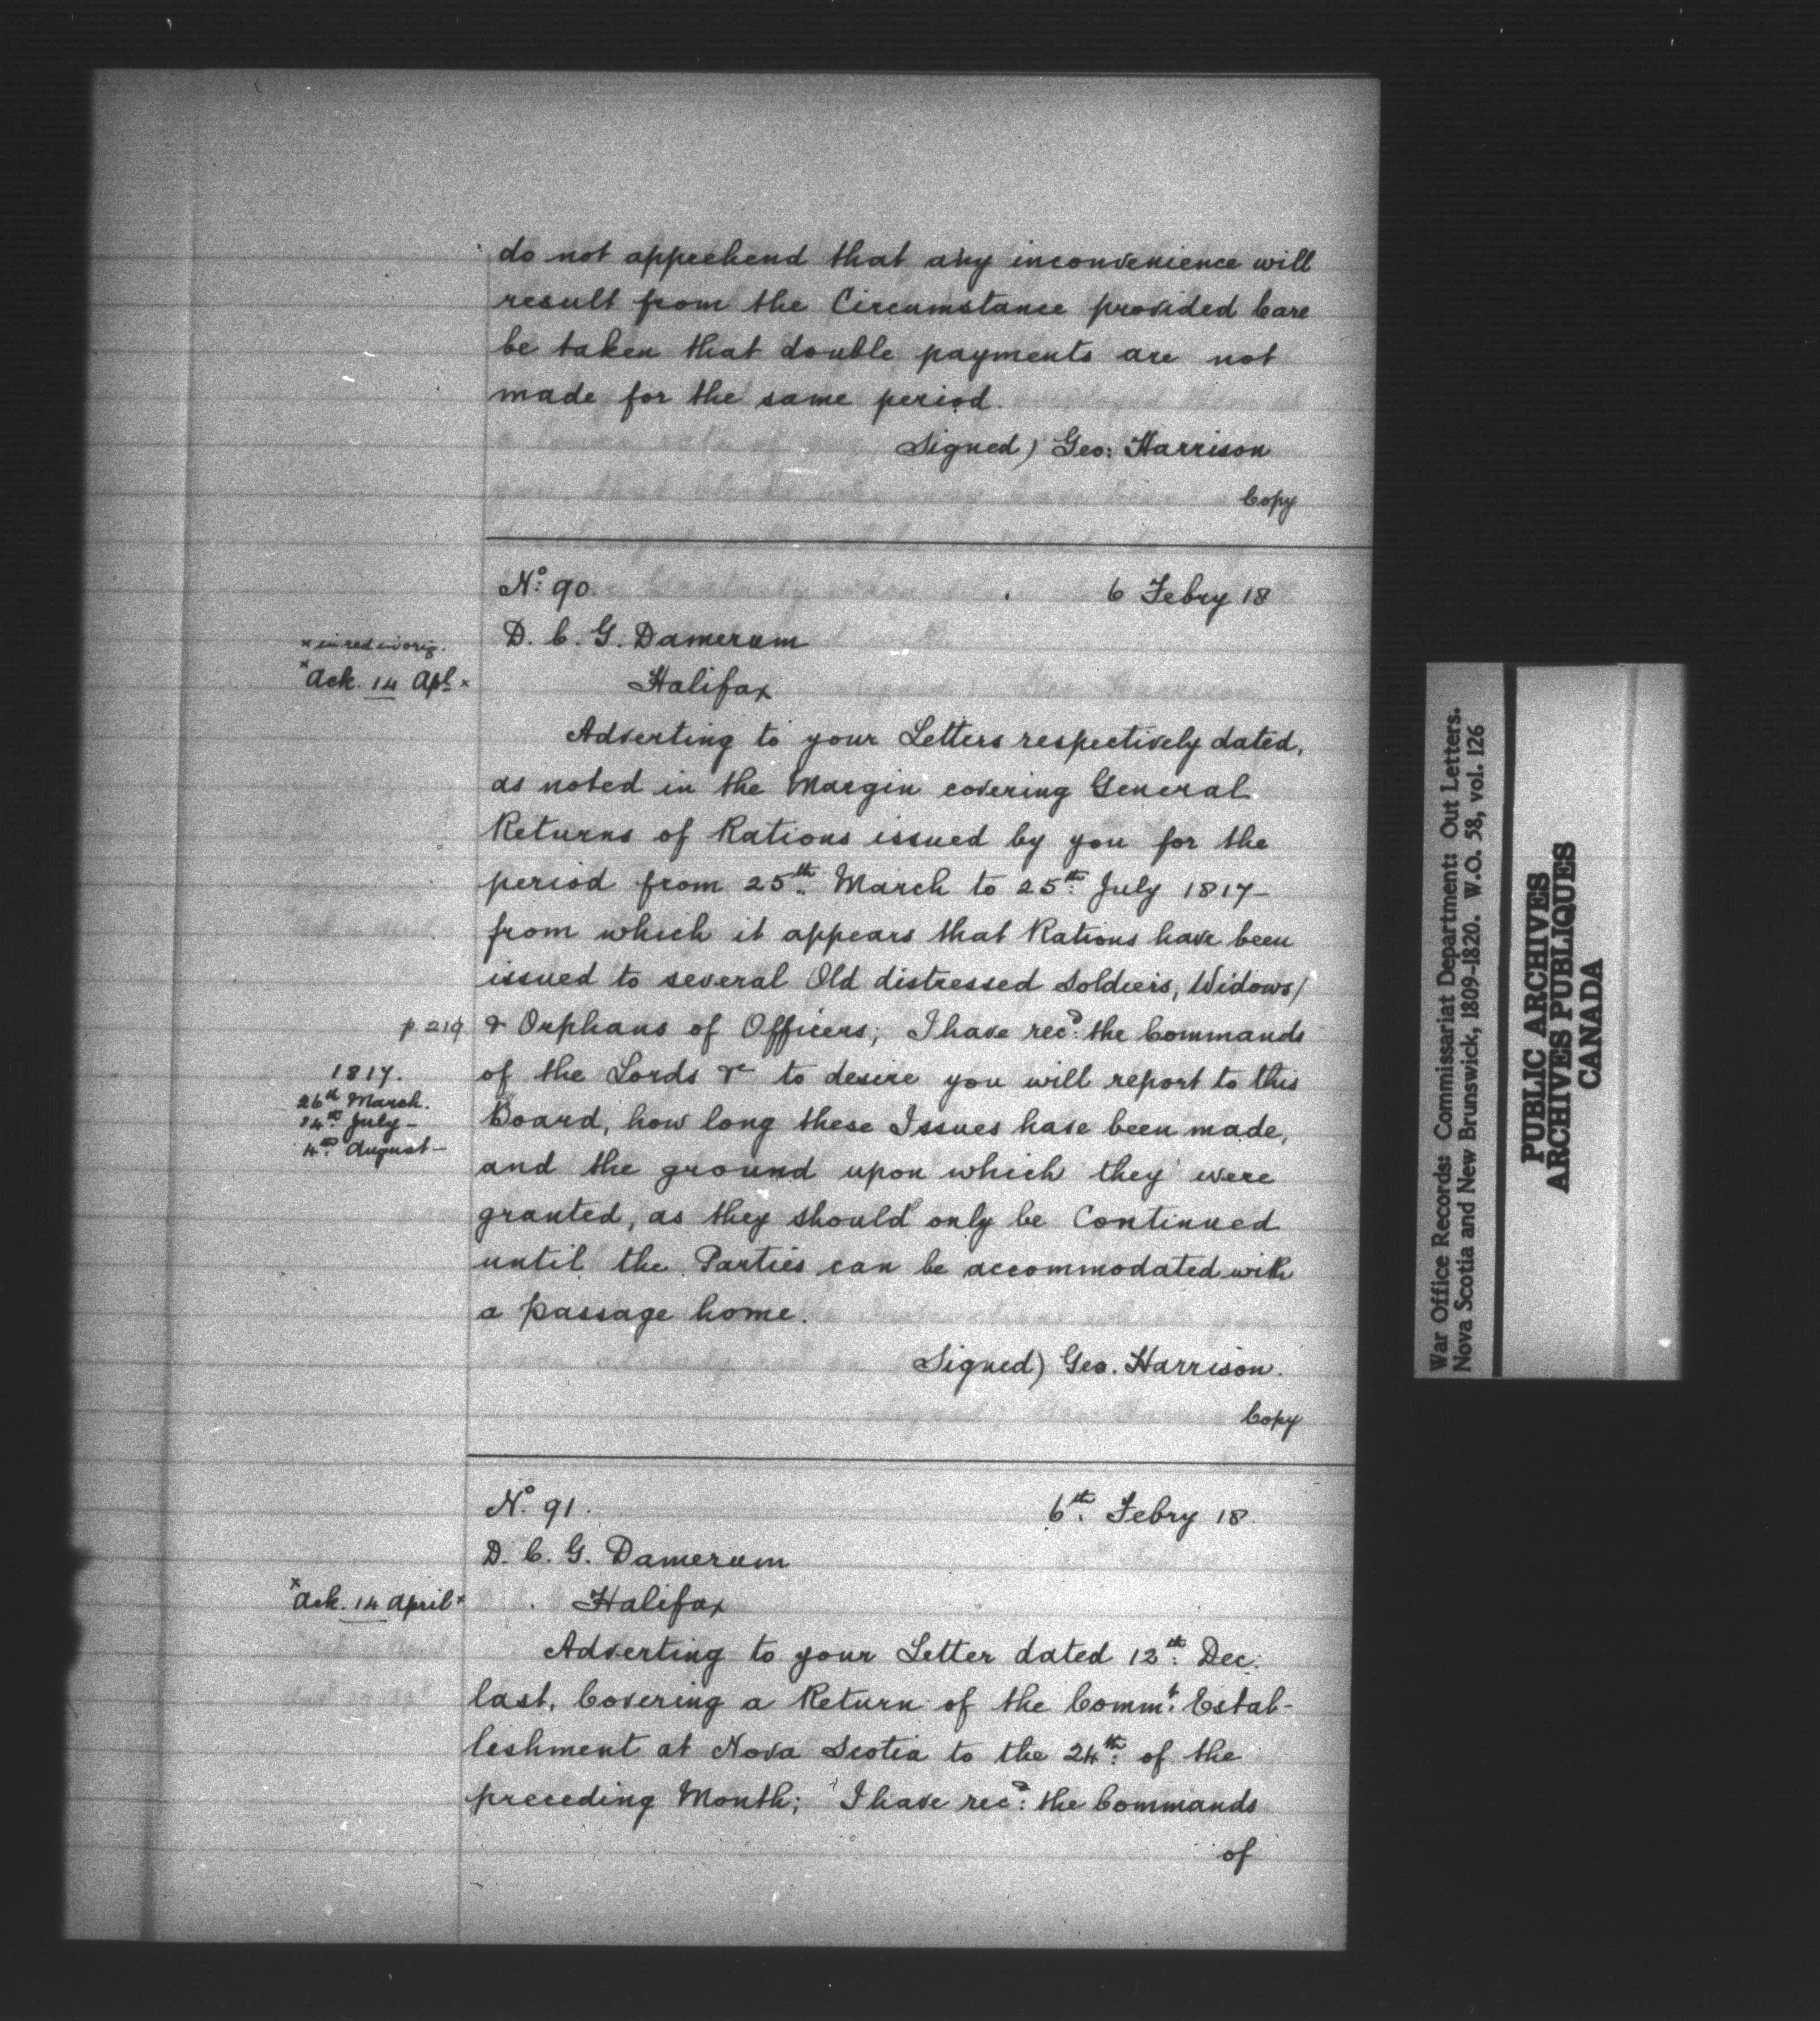 do not apprehend that any inconvenience will
result from the Circumstance provided Care
be taken that double payments are not
made for the same period.
Signed) Geo: Harrison
Copy
No: 90.
6 Febry 18
D. C. G. Damerum
x in red in orig.
x Ack. 14 Apl. x
Halifax
Adverting to your Letters respectively dated,
as noted in the Margin covering General
Returns of Rations issued by you for the
period from 25th. March to 25th. July 1817-
from which it appears that Rations have been
issued to several Old distressed Soldiers, Widows/
p. 219
& Orphans of Officers; I have recd: the Commands
of the Lords &c to desire you will report to this
1817.
26th March.
14th. July -
4th. August -
Board, how long these Issues have been made,
and the ground upon which they were
granted, as they should only be Continued
until the Parties can be accommodated with
a passage home.
Signed) Geo. Harrison.
Copy
No. 91.
6th. Febry 18.
D. C. G. Damerum
x Ack. 14 April x
Halifax
Adverting to your Letter dated 12th. Dec:
last, Covering a Return of the Commt: Estab-
lishment at Nova Scotia to the 24th: of the
preceding Month; I have recd: the Commands
of
War Office Records: Commissariat Department: Out Letters.
Nova Scotia and New Brunswick, 1809-1820. W.O. 58, vol. 126
PUBLIC ARCHIVES
ARCHIVES PUBLIQUES
CANADA